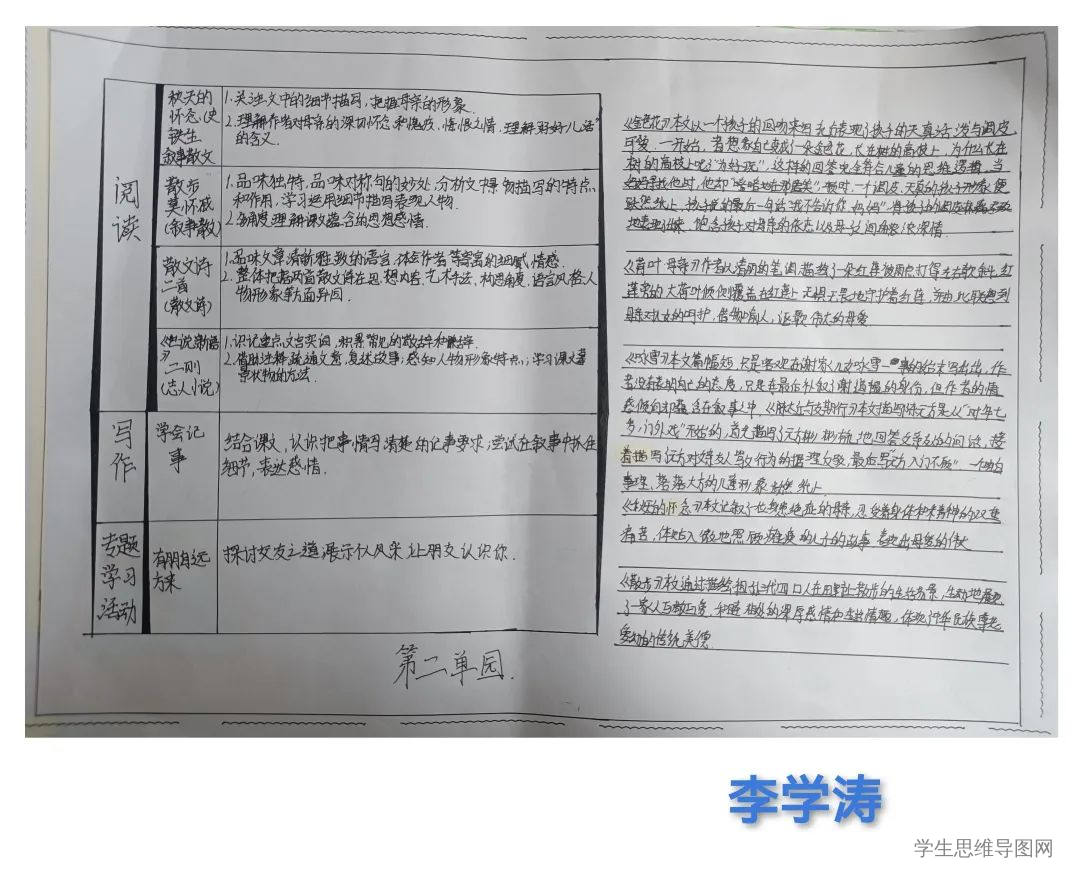 阅读
秋天的
怀念(史
铁生
叙事散文
1.关注文中的细节描写,把握母亲的形象
2.理解作者对母亲的深切怀念和愧疚、悔恨之情,理解"好好儿活"
的含义.
散步
莫怀戚
(叙事散)
1.品味独特,品味对称句的妙处,分析文中景物描写的特点
和作用,学习运用细节描写表现人物.
2.多角度理解课文蕴含的思想感情.
散文诗
二首
(散文诗)
1.品味文章清新雅致的语言,体会作者丰富的细腻情感.
2.整体把握两首散文诗在思想内容、艺术手法、构思角度、语言风格、人
物形象等方面异同.
《世说新语
》
二则
(志人小说)
1.识记重点文言实词,积累常见的敬辞和谦辞.
2.借助注释疏通文意,复述故事;感知人物形象特点,;学习课文写
景状物的方法.
写作
学会记
事
结合课文,认识把事情写清楚的记事要求,尝试在叙事中抓住
细节,表达感情.
专题
学习
活动
有朋自远
方来
探讨交友之道,展示个人风采,让朋友认识你.
第二单园.
《金色花》本文以一个孩子的口吻来写,充分表现了孩子的天真活泼与调皮
可爱.一开始,者想象自己变成了一朵金色花,长在树的高枝上,为什么长在
树的高枝上呢?"为好玩",这样的回答完全符合儿童的思维逻辑.当
妈妈寻找他时,他却"暗暗地在那匿笑"顿时,一个调皮、天真的孩子形象便
跃然纸上.孩子说的最后一句话"我不告诉你,妈妈"将孩子的调皮
地表现出来.饱含孩子对母亲的依恋以及母子间的浓浓情.
《荷叶 母亲》作者以清丽的笔调,描救了一朵红莲被雨点打得左右欹斜,红
莲旁的大荷叶倾侧覆盖在红莲上,无惧无畏地守护着红莲,并由此联想到
母亲对儿女的呵护,借物喻人,讴歌伟大的母爱.
《咏雪》本文篇幅短,只是客观在谢家儿女咏雪一事的始末写出出,作
者没有表明自己的态度,只是在最后补叙了谢道韫的身份,但作者的情
感倾向却蕴含在叙事人中.《陈太丘与友期行》本文描写陈元方是从"时年七
岁,门外戏"开始的,首先描写了元方彬彬有礼地回答父亲友的问话,接
着描写元方对好友人驾父行为的据理力驳,最后写元方"入门不顾",一个明白
事理、落落大方的儿童形象跃然纸上.
《秋天的怀念》本文记叙了也身患绝症的母亲,忍受着身体和精神的双重
痛苦,体贴入微地照顾瘫痪的儿子的故事,表现出母爱的伟大
《散步》本文通过描绘祖孙三代四口人在田野上散步的生活场景,生动地展现
了一家人互敬互爱、和睦相处的深厚感情和生活情趣,体现了中华民族尊老
爱幼的传统美德.
李学涛
学生思维导图网